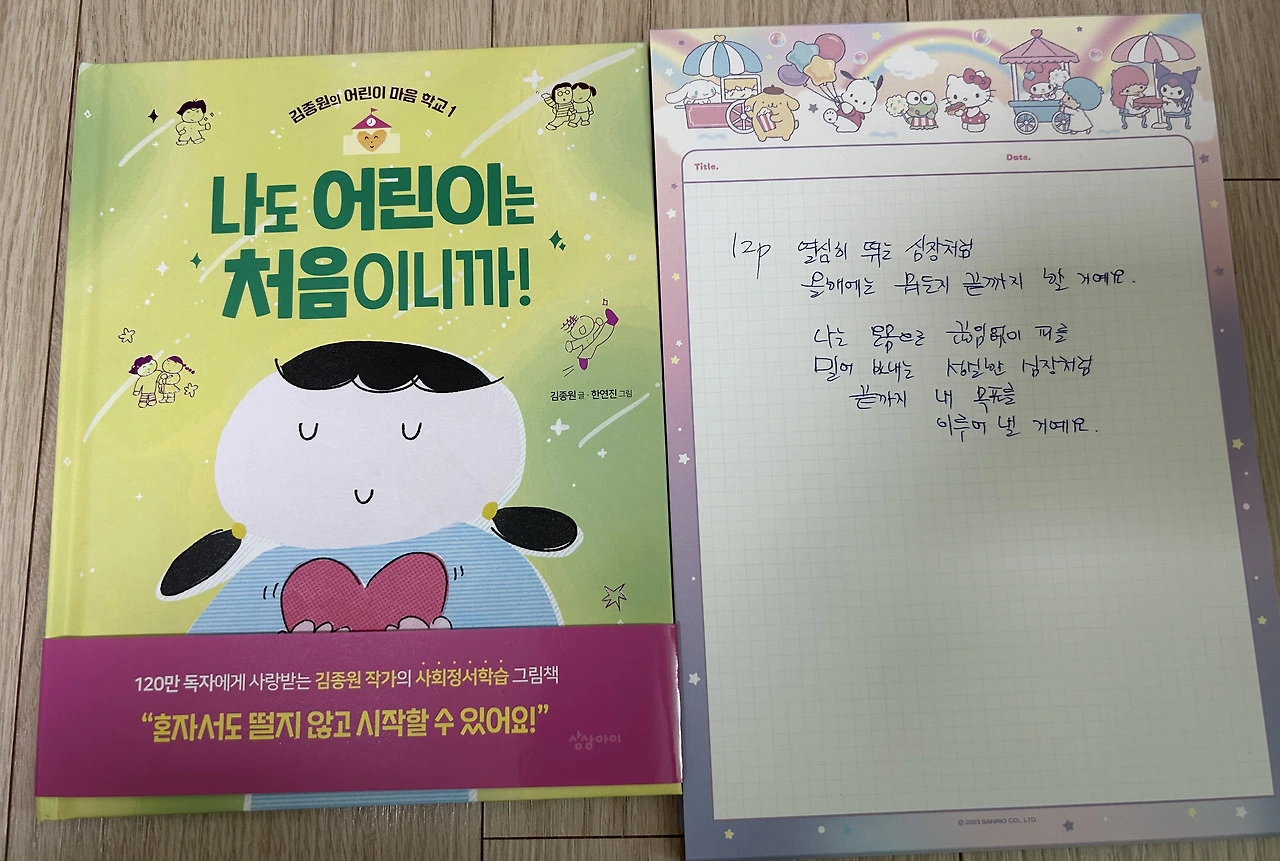 김종원의 어린이 마음 학교 1
나도 어린이는
처음이니까!
김종원 글 · 한연진 그림
120만 독자에게 사랑받는 김종원 작가의 사회정서학습 그림책
“혼자서도 떨지 않고 시작할 수 있어요!”
상상아이
Title.
Date.
12p 열심히 뛰는 심장처럼
올해에는 뭐든지 끝까지 할 거예요.
나는 온몸으로 끊임없이 피를
밀어 보내는 성실한 심장처럼
끝까지 내 목표를
이루어 낼 거예요.
© 2023 SANRIO CO., LTD.